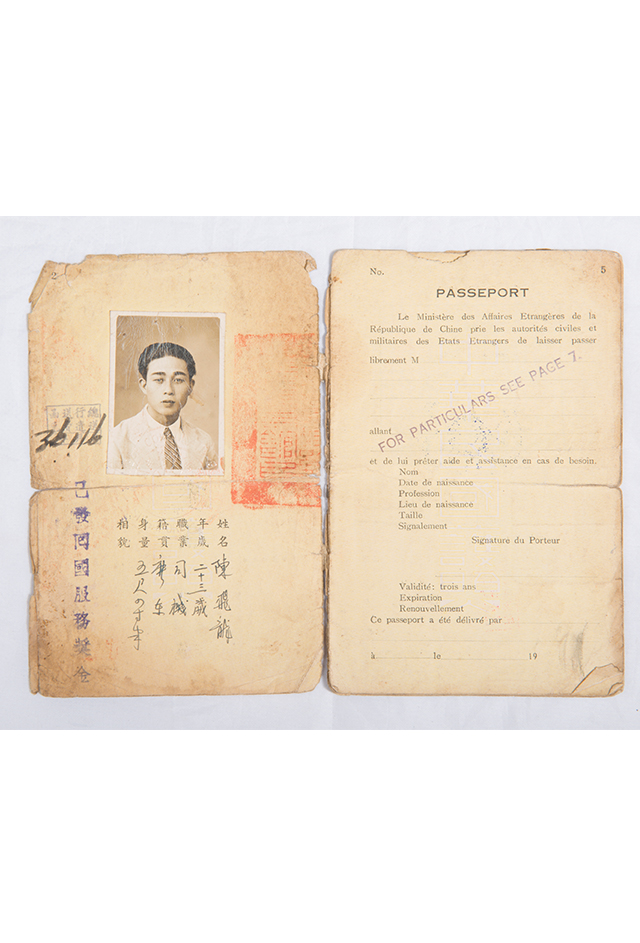 2
36,116
已發回國服務獎金
姓名 陳飛龍
年歲 二十三歲
職業 司機
籍貫 廣東
身量 五尺
相貌
No. 5
PASSEPORT
Le Ministère des Affaires Etrangères de la
République de Chine prie les autorités civiles et
militaires des Etats Etrangers de laisser passer
librement M
FOR PARTICULARS SEE PAGE 7.
allant
et de lui prêter aide et assistance en cas de besoin.
Nom
Date de naissance
Profession
Lieu de naissance
Taille
Signalement
Signature du Porteur
Validité: trois ans
Expiration
Renouvellement
Ce passeport a été délivré par
à le 19